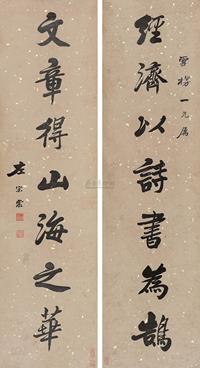 經濟以詩書爲鵠
雪樵一兄屬
文章得山海之華
左宗棠